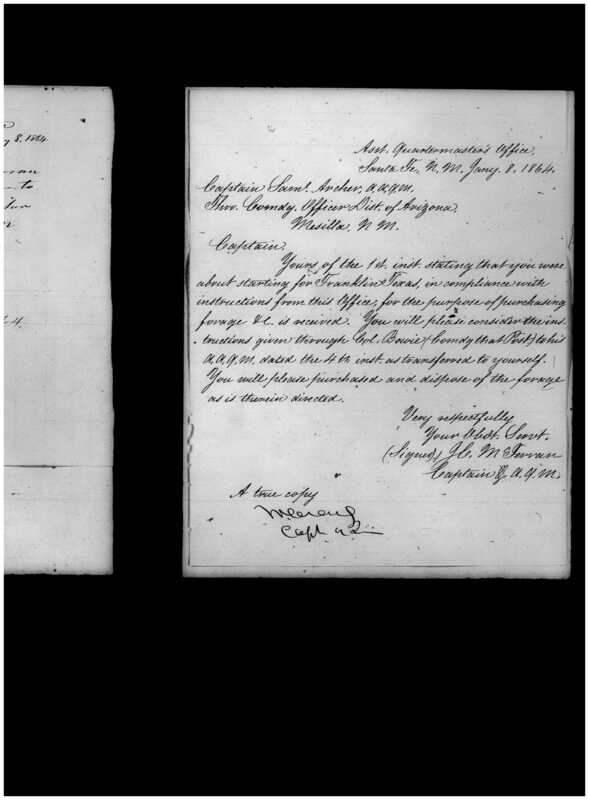 y 8. 1864
Asst. Quartermaster's Office
Santa Fe, N. M. Jany. 8. 1864.
Captain Saml. Archer, A.A.Q.M.
Thro. Comdg. Officer Dist. of Arizona.
Mesilla, N M.
Captain.
Yours of the 1st. inst. stating that you were
about starting for Franklin Texas, in compliance with
instructions from this Office, for the purpose of purchasing
forage &c. is received. You will please consider the ins
tructions given through Col. Bowie (Comdg that Post) to his
A.A.Q.M. dated the 4th inst. as transferred to yourself.
You will please purchased and dispose of the forage
as is therein directed.
Very respectfully
Your Obdt. Servt.
(Signed) J.C. McFerran
Captain & A.Q.M.
A true copy
Capt